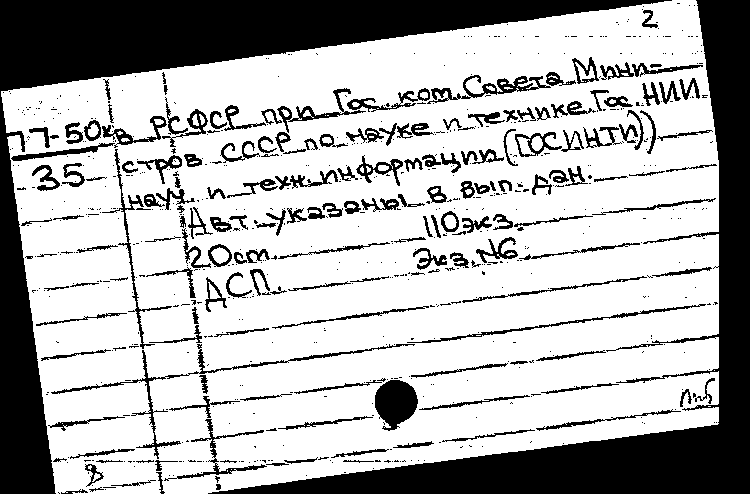 2
77-50к в РСФСР при Гос. ком. Совета Мини-
35 стров СССР по науке и технике. Гос. НИИ
науч. и техн. информации (ГОСИНТИ)).
Авт. указаны в вып. дан.
20 ст. 110 экз.
ДСП. Экз. №6.